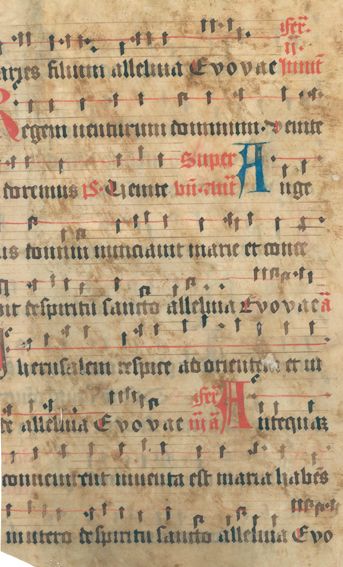 fer̄.
aries filium alleluia Evovae ii. Inuit̄
Regem uenturum dominum. Venite
doremus ps. Venite Super Ange
us domini nunciauit marie et conce
pit despiritu sancto alleluia Evovae a
Iherusalem respice ad orientem et ui
de alleluia Evovae fer̄ iii a Antequaz
conuenirent inuenta est maria habēs
in utero despiritu sancto alleluia Evo